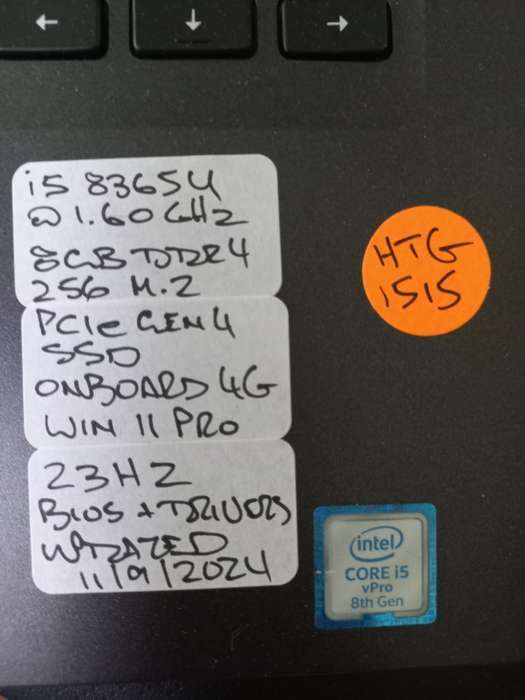 ← ↓ →
i5 8365U
@ 1.60GHz
8GB DDR4
256 M.2
PCIe GEN4
SSD
ONBOARD 4G
WIN 11 PRO
23H2
BIOS + DRIVERS
UPDATED
11/9/2024
HTG
1515
intel
CORE i5
vPro
8th Gen